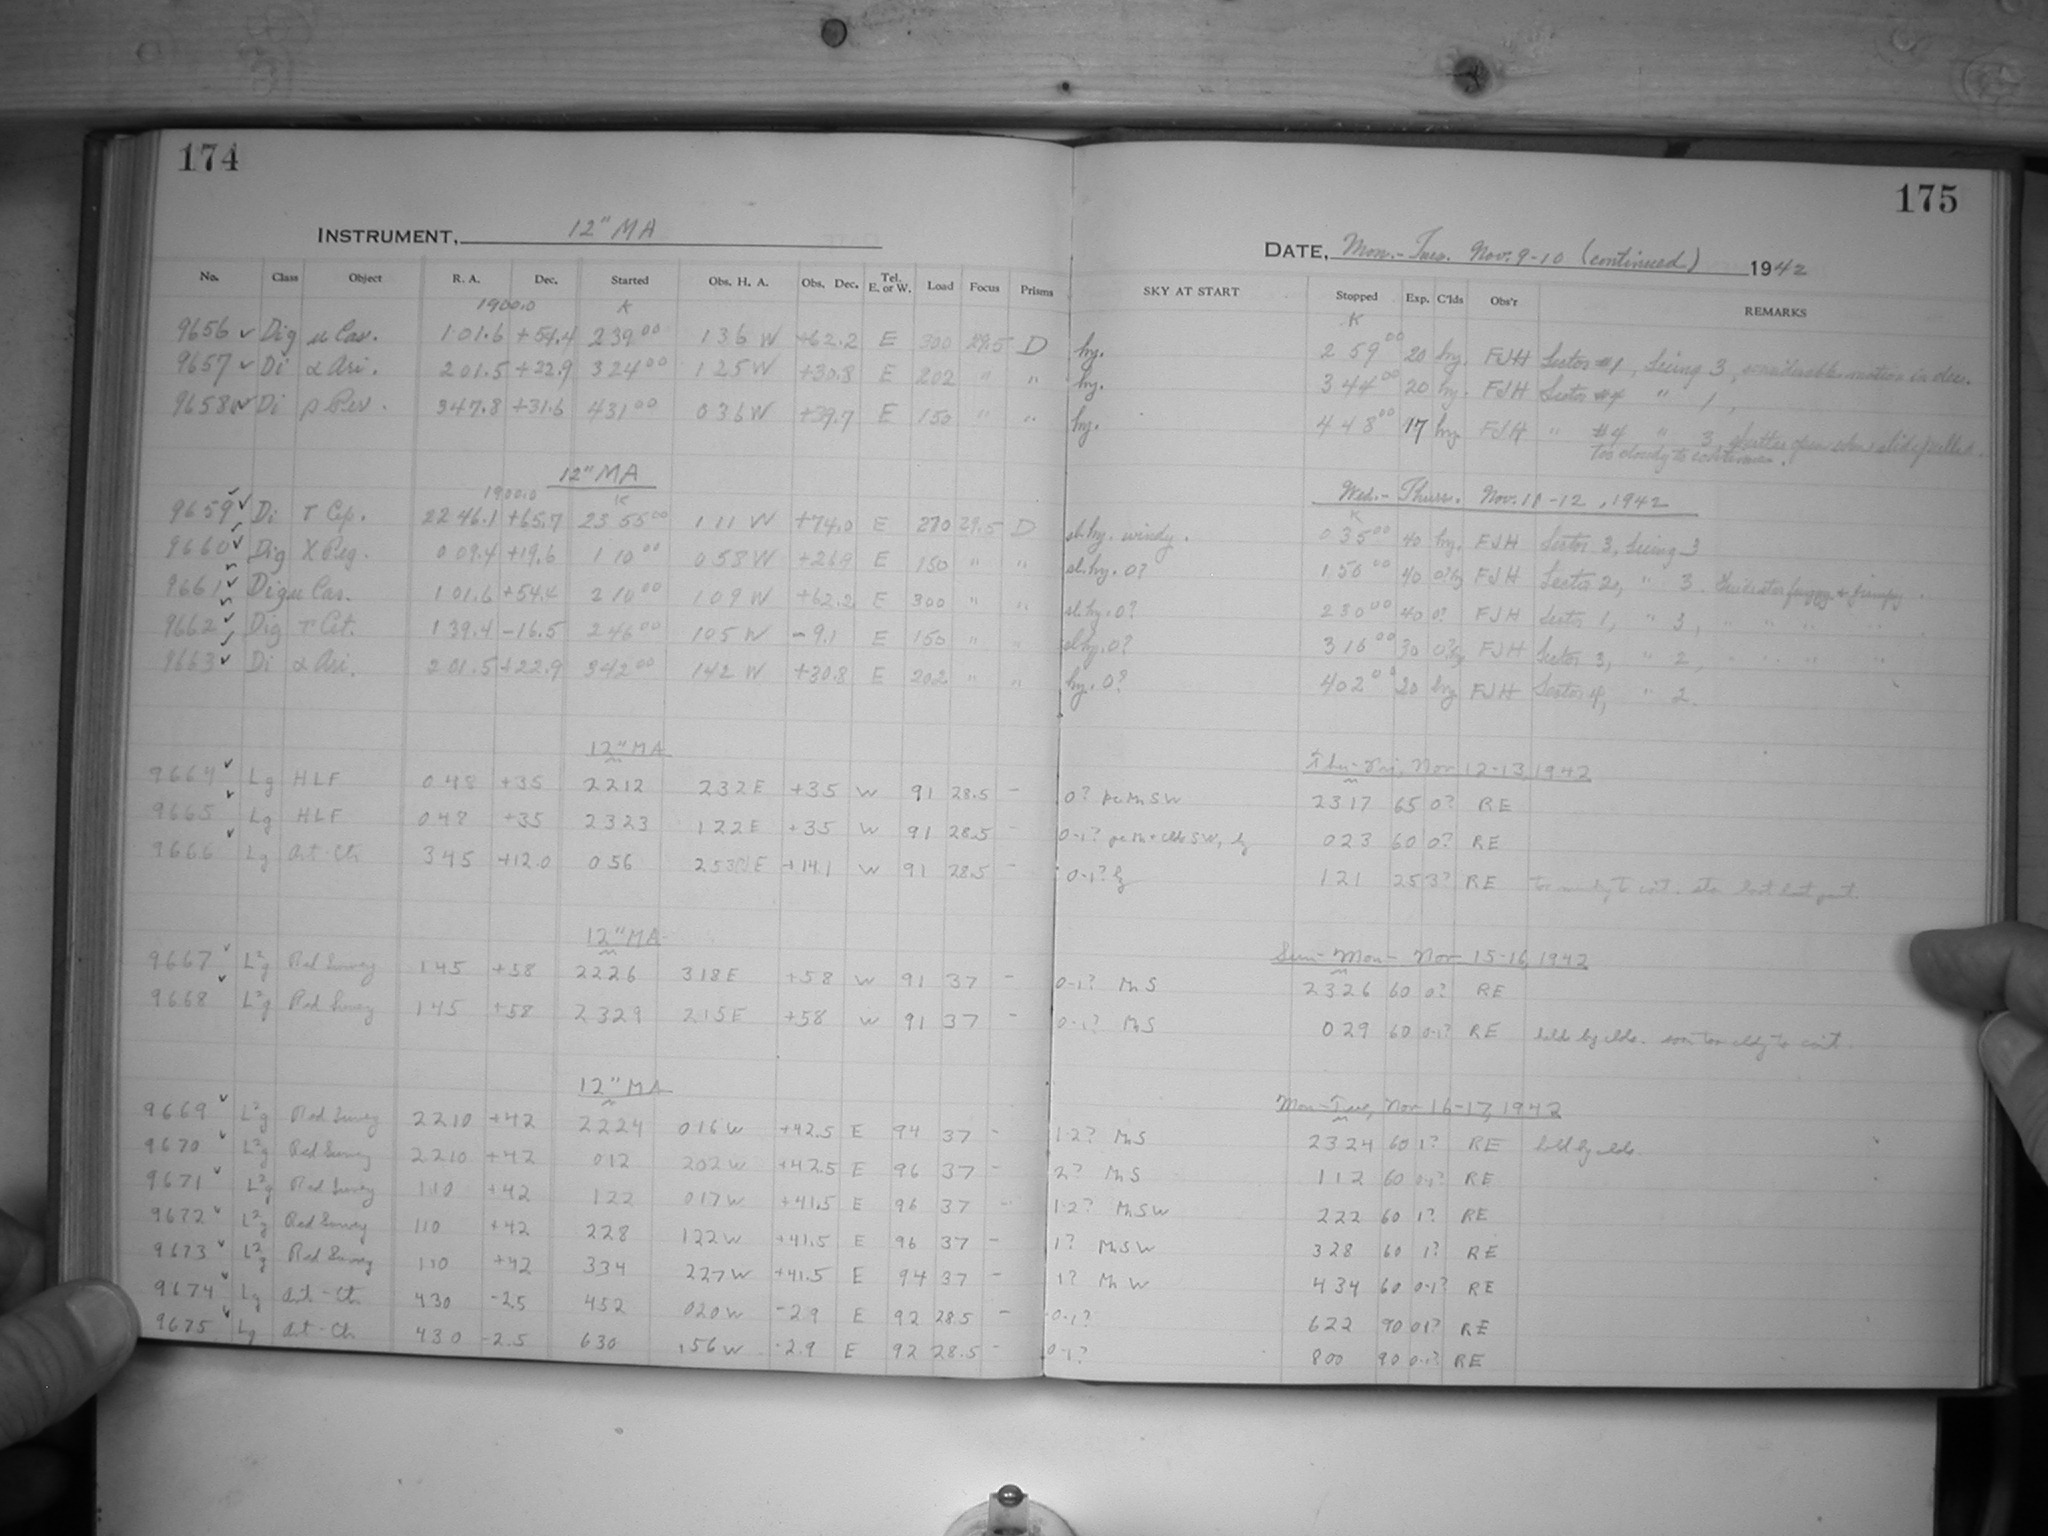 174
175
INSTRUMENT, 12" MA
DATE, Mon.-Tues. Nov. 9-10 (continued) 1942
No. Class Object R. A. Dec. Started Obs. H. A. Obs. Dec. Tel. E. or W. Load Focus Prisms SKY AT START Stopped Exp. C'lds Obs'r REMARKS
1900.0 K K
9656 ✓ Dig μ Cas. 1 01.6 +54.4 2 39 00 1 36 W +62.2 E 300 29.5 D hy. 2 59 00 20 hy. FJH Sector #1, Seeing 3, considerable motion in dec.
9657 ✓ Di α Ari. 2 01.5 +22.9 3 24 00 1 25 W +30.8 E 202 " " hy. 3 44 00 20 hy. FJH Sector #4 " 1,
9658 ✓ Di ρ Per. 3 47.8 +31.6 4 31 00 0 36 W +39.7 E 150 " " hy. 4 48 00 17 hy. FJH " #4 " 3, shutter open when slide pulled.
Too cloudy to continue.
12" MA Wed.-Thurs. Nov. 11-12, 1942
1900.0 K K
9659 ✓ Di τ Cep. 22 46.1 +65.7 23 55 00 1 11 W +74.0 E 270 29.5 D sl. hy. windy. 0 35 00 40 hy. FJH Sector 3, Seeing 3
9660 ✓ Dig χ Peg. 0 09.4 +19.6 1 10 00 0 58 W +26.9 E 150 " " sl. hy. 0? 1 50 00 40 0? hy FJH Sector 2, " 3. Guide star fuzzy & jumpy.
9661 ✓ Dig μ Cas. 1 01.6 +54.4 2 10 00 1 09 W +62.2 E 300 " " sl. hy. 0? 2 30 00 40 0? FJH Sector 1, " 3, " " " "
9662 ✓ Dig τ Cet. 1 39.4 -16.5 2 46 00 1 05 W -9.1 E 150 " " sl. hy. 0? 3 16 00 30 0? hy FJH Sector 3, " 2, " " " "
9663 ✓ Di α Ari. 2 01.5 +22.9 3 42 00 1 42 W +30.8 E 202 " " hy. 0? 4 02 00 20 hy FJH Sector 4, " 2.
12" MA Thu-Fri, Nov 12-13, 1942
9664 ✓ Lg HLF 0 48 +35 22 12 2 32 E +35 W 91 28.5 - 0? SW 23 17 65 0? RE
9665 ✓ Lg HLF 0 48 +35 23 23 1 22 E +35 W 91 28.5 - 0-1? clds SW, hz 0 23 60 0? RE
9666 ✓ Lg Art-Ch 3 45 +12.0 0 56 2 53 E +14.1 W 91 28.5 - 0-1? hz 1 21 25 3? RE too cloudy to cont. star lost last part.
12" MA Sun-Mon- Nov 15-16, 1942
9667 ✓ L²g Red Survey 1 45 +58 22 26 3 18 E +58 W 91 37 - 0-1? M S 23 26 60 0? RE
9668 ✓ L²g Red Survey 1 45 +58 23 29 2 15 E +58 W 91 37 - 0-1? M S 0 29 60 0-1? RE held by clds. soon too cldy to cont.
12" MA Mon-Tue, Nov 16-17, 1942
9669 ✓ L²g Red Survey 22 10 +42 22 24 0 16 W +42.5 E 94 37 - 1-2? M S 23 24 60 1? RE held by clds.
9670 ✓ L²g Red Survey 22 10 +42 0 12 2 02 W +42.5 E 96 37 - 2? M S 1 12 60 0-1? RE
9671 ✓ L²g Red Survey 1 10 +42 1 22 0 17 W +41.5 E 96 37 - 1-2? M SW 2 22 60 1? RE
9672 ✓ L²g Red Survey 1 10 +42 2 28 1 22 W +41.5 E 96 37 - 1? M SW 3 28 60 1? RE
9673 ✓ L²g Red Survey 1 10 +42 3 34 2 27 W +41.5 E 94 37 - 1? M W 4 34 60 0-1? RE
9674 ✓ Lg Art-Ch 4 30 -2.5 4 52 0 20 W -2.9 E 92 28.5 - 0-1? 6 22 90 0-1? RE
9675 ✓ Lg Art-Ch 4 30 -2.5 6 30 1 56 W -2.9 E 92 28.5 - 0-1? 8 00 90 0-1? RE